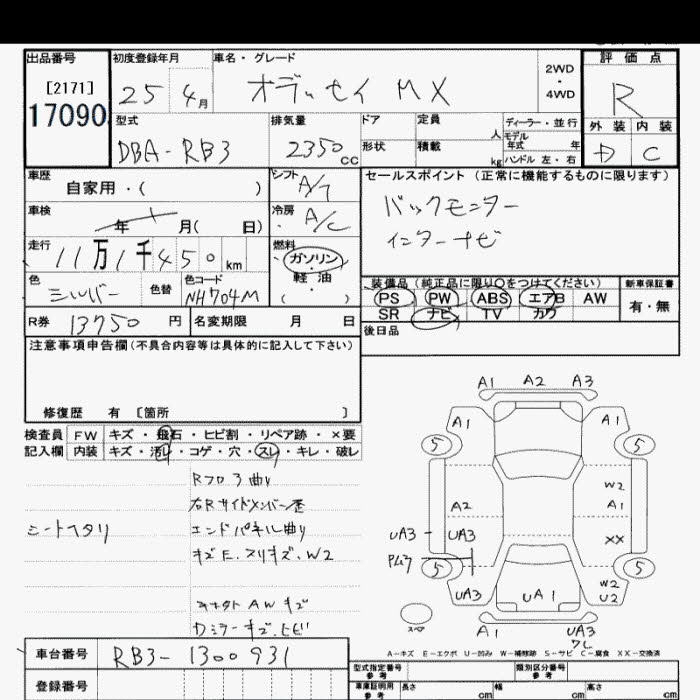 出品番号
[2171]
17090
初度登録年月
25 4月
車名・グレード
オデッセイ MX
2WD
・
4WD
評価点
R
型式
DBA-RB3
排気量
2350cc
ドア
形状
定員
人
積載
kg
ディーラー・並行
モデル
年式 年
ハンドル 左・右
外装 内装
D C
車歴
自家用・( )
シフト
A/T
セールスポイント (正常に機能するものに限ります)
バックモニター
インターナビ
車検
年 月( 日)
冷房
A/C
走行
11万1千450km
燃料
ガソリン
・
軽油
・
( )
色
シルバー
色替
色コード
NH704M
装備品(純正品に限り○をつけてください)
PS PW ABS エアB AW
SR ナビ TV カワ
新車保証書
有・無
後日品
R券 13750円
名変期限 月 日
注意事項申告欄(不具合内容等は具体的に記入して下さい)
修復歴 有 〔箇所 〕
検査員
記入欄
FW キズ・飛石・ヒビ割・リペア跡・×要
内装 キズ・汚れ・コゲ・穴・スレ・キレ・破レ
シートヘタリ
Rフロア曲り
右Rサイドメンバー歪
エンドパネル曲り
キズE.スリキズ.W2
AWキズ
Dミラーキズ.ヒビ
A1 A2 A3
A1 A1
5 5
W2
A2 A1
UA3 UA3 XX
5 5
UA3 W2
U2
UA1
A1 UA3
スペア
A-キズ E-エクボ U-凹み W-補修跡 S-サビ C-腐食 XX-交換済
車台番号
RB3-1300931
登録番号
型式指定番号
参考
類別区分番号
参考
車庫証明用
参考
長さ cm
幅 cm
高さ cm